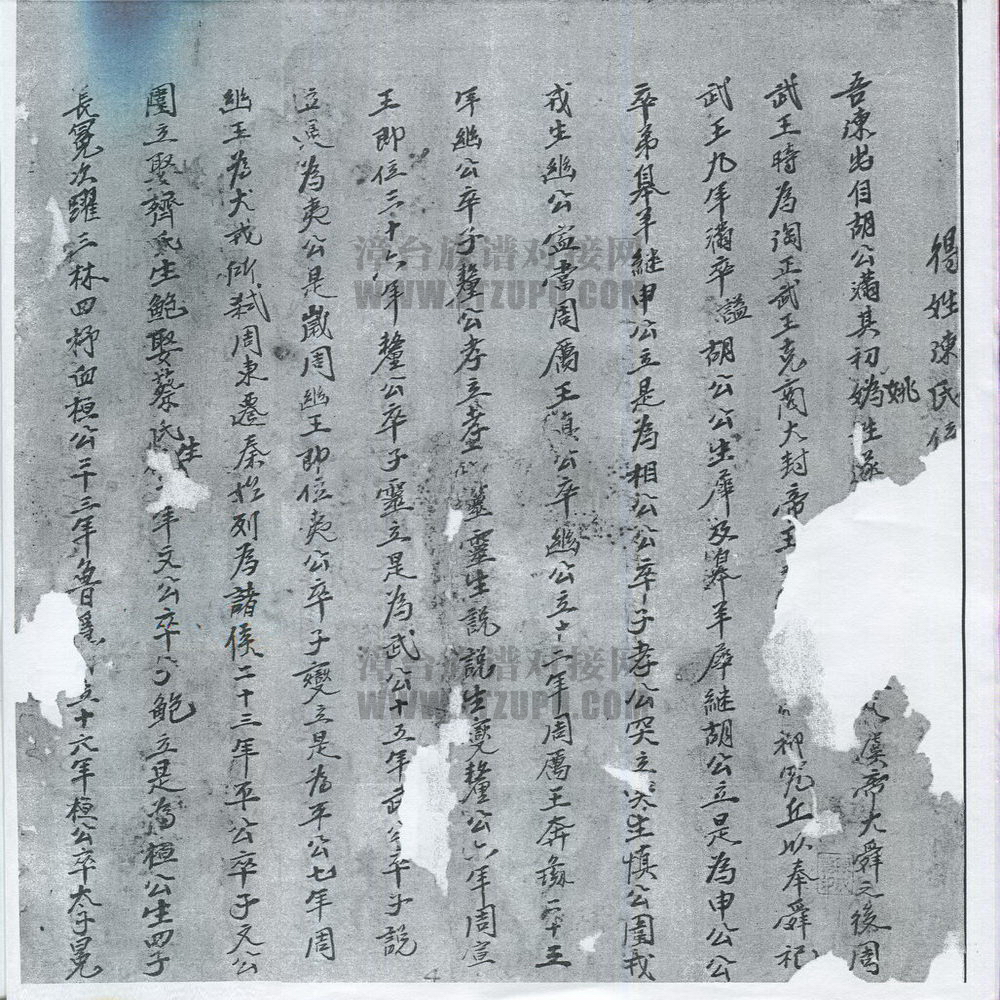 得姓陳氏
吾陳出自胡公滿其初媯姚姓 虞帝大舜之後周
武王時為陶正武王克商大封帝王 宛丘以奉舜祀
武王九年滿卒謚胡公公生犀及皋羊犀継胡公立是為申公公
卒弟皋羊継申公立是為相公公卒子孝公突立突生慎公圉戎
戎生幽公寍當周厲王慎公卒幽公立十二年周厲王奔彘二十三
年幽公卒子釐公孝立孝生靈靈生説説生燮釐公六年周宣
王即位三十六年釐公卒子靈立是為武公十五年武公卒子説
立是為夷公是歲周幽王即位夷公卒子燮立是為平公七年周
幽王為犬戎所弒周東遷秦始列為諸侯二十三年平公卒子文公
圉立娶齊氏生鮑娶蔡氏生 年文公卒子鮑立是為桓公生四子
長冕次躍三林四杵臼桓公二十三年魯 立十六年桓公卒太子冕
漳台族谱对接网
WWW.ZTZUPU.COM
漳台族谱对接网
WWW.ZTZUPU.COM